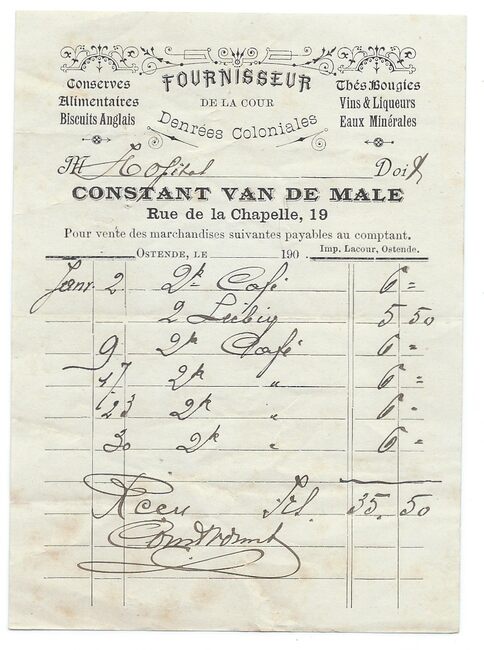 FOURNISSEUR
DE LA COUR
Denrées Coloniales
Conserves
Alimentaires
Biscuits Anglais
Thés Bougies
Vins & Liqueurs
Eaux Minérales
M Hopital Doit
CONSTANT VAN DE MALE
Rue de la Chapelle, 19
Pour vente des marchandises suivantes payables au comptant.
OSTENDE, LE 190
Imp. Lacour, Ostende.
Janv. 2 2k Café 6 =
2 Liebig 5 50
9 2k Café 6 =
17 2k " 6 =
23 2k " 6 =
30 2k " 6 =
Reçu 35. 50